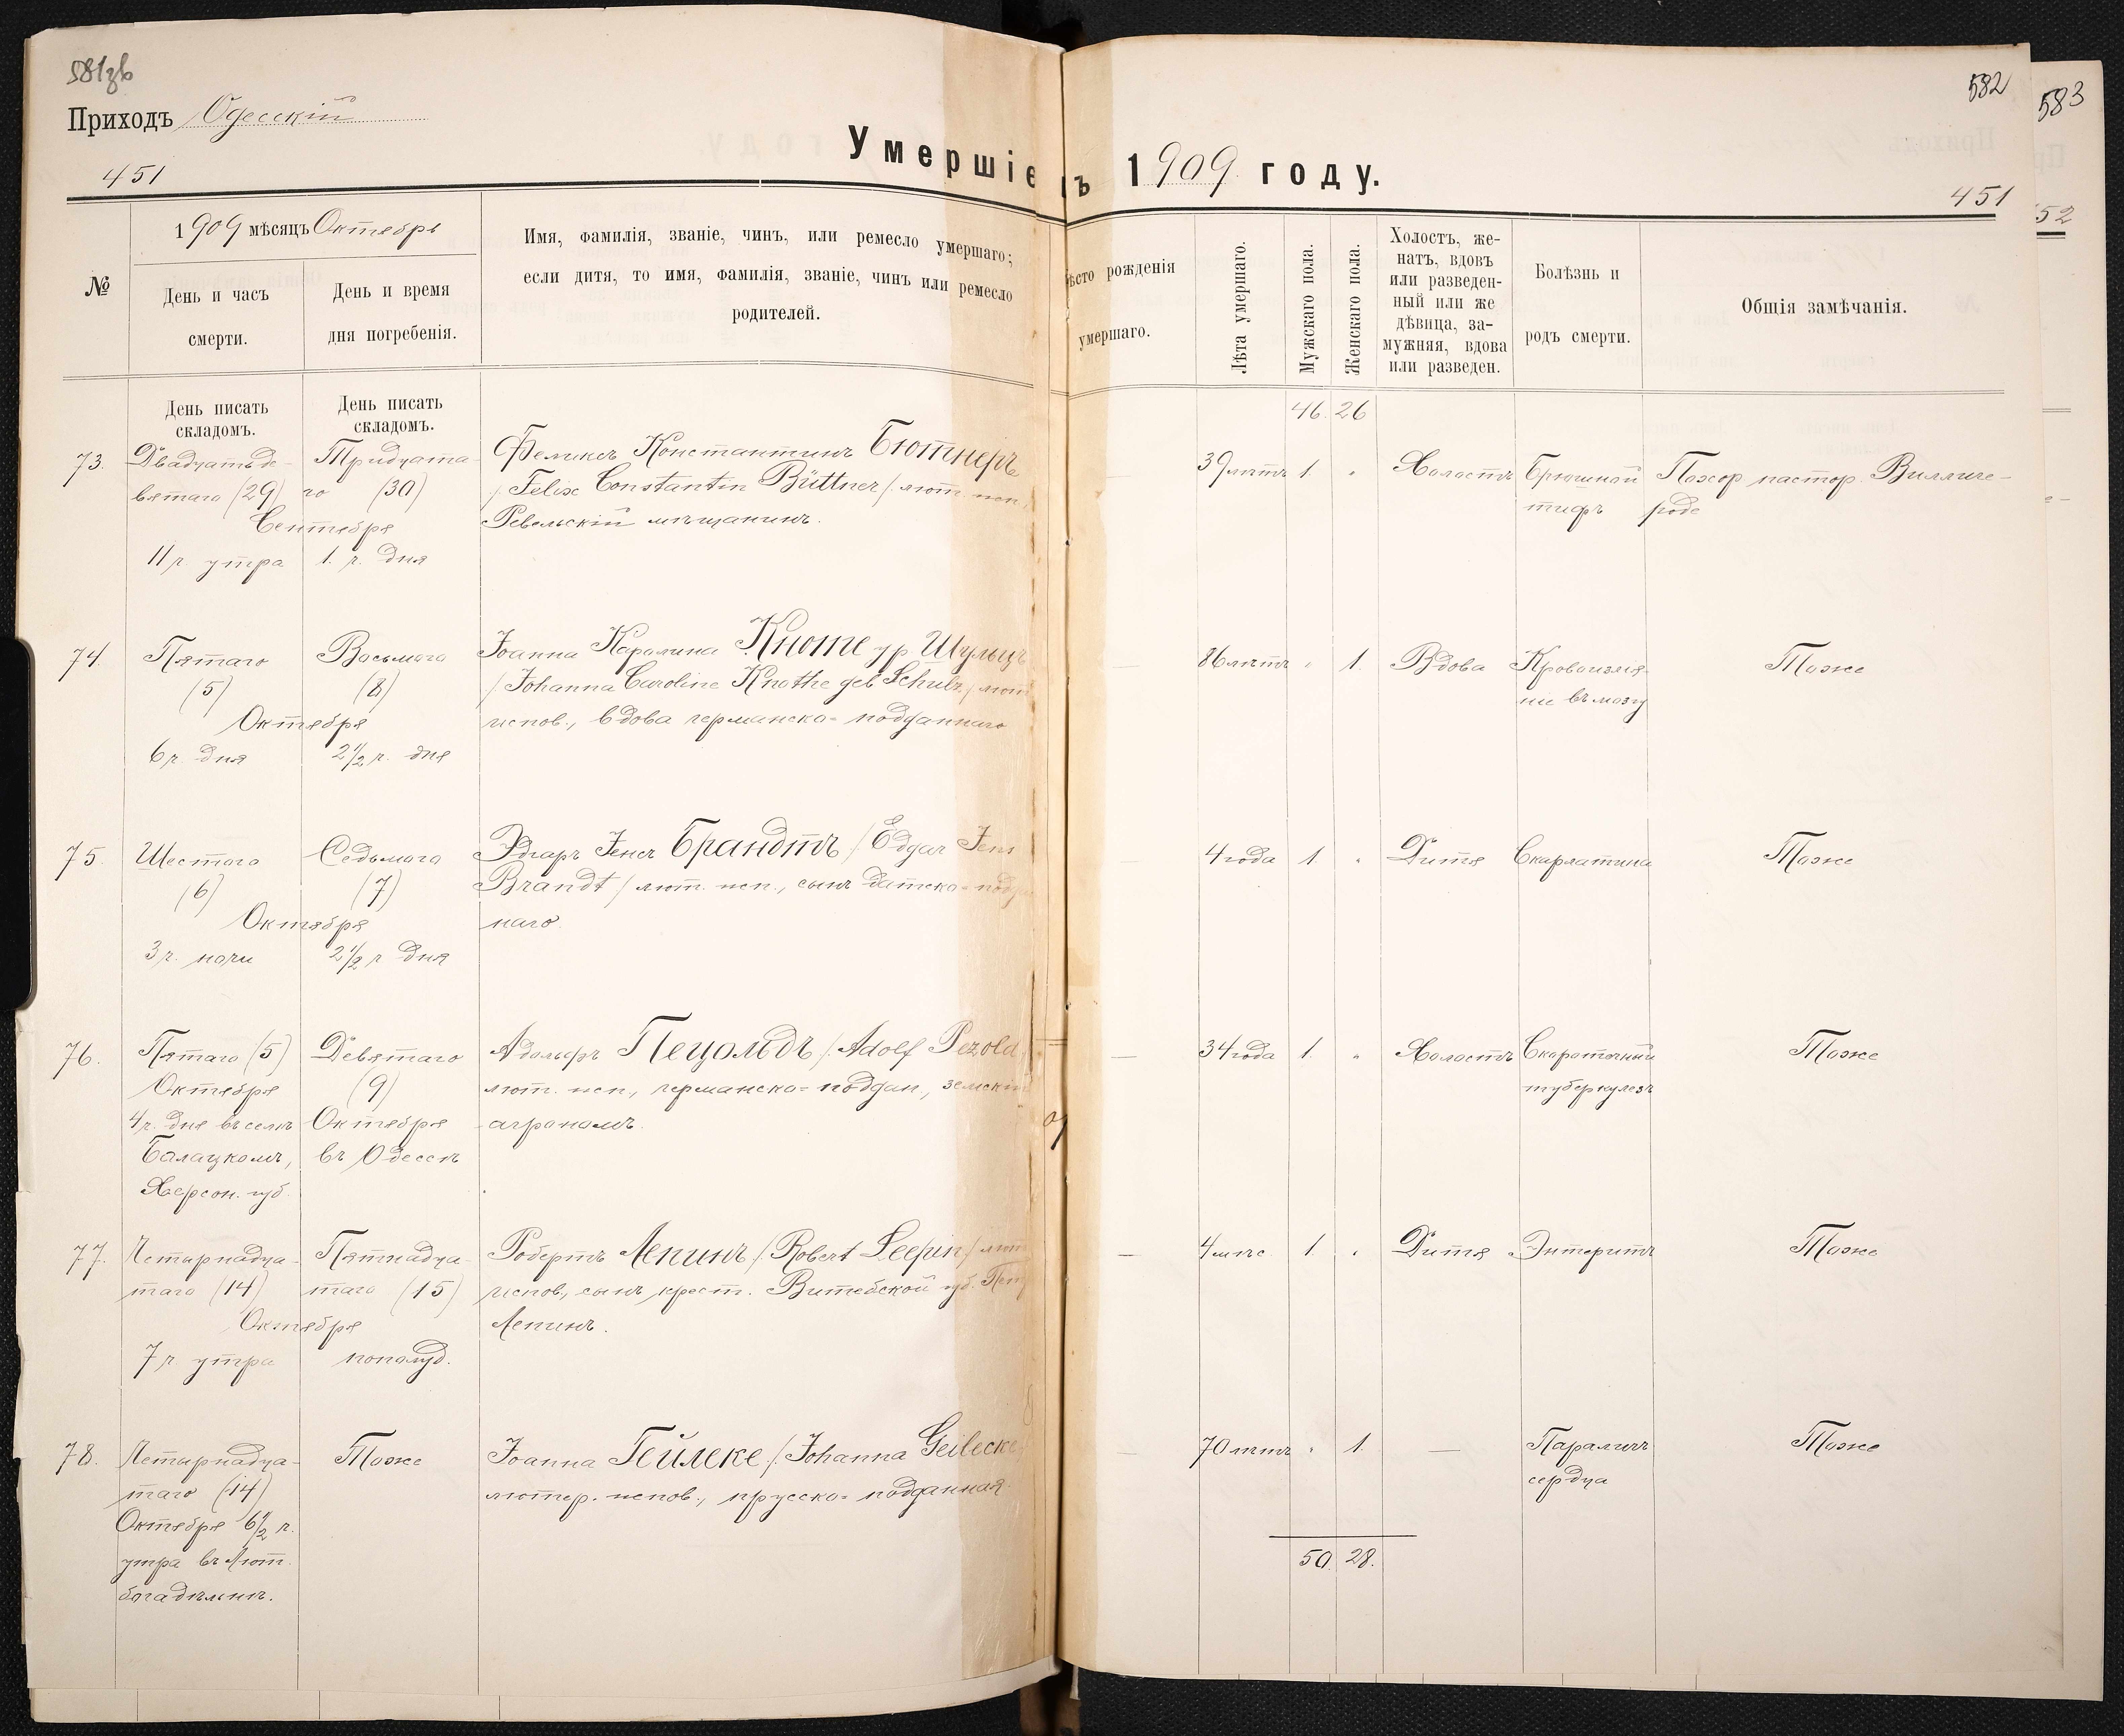 581зв
Приходъ Одесскій
582
583
Умершіе
ъ 1909 году.
451
451
52
№
1909 мѣсяцъ Октябрь
День и часъ
смерти.
День и время
дня погребенія.
Имя, фамилія, званіе, чинъ, или ремесло умершаго;
если дитя, то имя, фамилія, званіе, чинъ или ремесло
родителей.
ѣсто рожденія
умершаго.
Лѣта умершаго.
Мужскаго пола.
Женскаго пола.
Холостъ, же-
натъ, вдовъ
или разведен-
ный или же
дѣвица, за-
мужняя, вдова
или разведен.
Болѣзнь и
родъ смерти.
Общія замѣчанія.
День писать
складомъ.
День писать
складомъ.
46. 26
73.
Двадцатьде-
вятаго (29)
Тридцата-
го (30)
Сентября
11 ч. утра
1. ч. дня
Феликсъ Константинъ Бютнеръ
/ Felix Constantin Büttner / лют. исп.,
Ревельскій мѣщанинъ.
—
39 лѣтъ
1.
"
Холостъ
Брюшной
тифъ
Похор пастор. Виллиге-
роде
74.
Пятаго
(5)
Восьмого
(8)
Октября
6 ч. дня
2 1/2 ч. дня
Іоанна Каролина Кноте ур Шульцъ
/ Johanna Caroline Knothe geb Schulz / лют
испов., вдова германско-подданнаго
—
86 лѣтъ
"
1.
Вдова
Кровоизлія-
ніе въ мозгу
Тоже
75.
Шестого
(6)
Седьмого
(7)
Октября
3 ч. ночи
2 1/2 ч дня
Эдгаръ Іенсъ Брандтъ / Edgar Jens
Brandt / лют. исп., сынъ датско-подд
наго.
—
4 года
1.
"
Дитя
Скарлатина
Тоже
76.
Пятаго (5)
Октября
4 ч. дня въ селѣ
Балацкомъ,
Херсон. губ.
Девятаго
(9)
Октября
въ Одессѣ
Адольфъ Пецольдъ / Adolf Pezold
лют. исп., германско-поддан., земскій
агрономъ.
—
34 года
1.
"
Холостъ
Скоротечный
туберкулезъ
Тоже
77.
Четырнадца-
таго (14)
Пятнадца-
таго (15)
Октября
7 ч. утра
пополуд.
Робертъ Лепинъ / Robert Leepin / лют
испов., сынъ крест. Витебской губ.
Лепинъ.
—
4 мѣс
1.
"
Дитя
Энтеритъ
Тоже
78.
Четырнадца-
таго (14)
Октября 6 1/2 ч.
утра въ Лют.
богадѣльнѣ.
Тоже
Іоанна Гейлеке / Johanna Geilecke
лютер. испов., прусско-подданная
—
70 лѣтъ
"
1.
—
Параличъ
сердца
Тоже
50. 28.